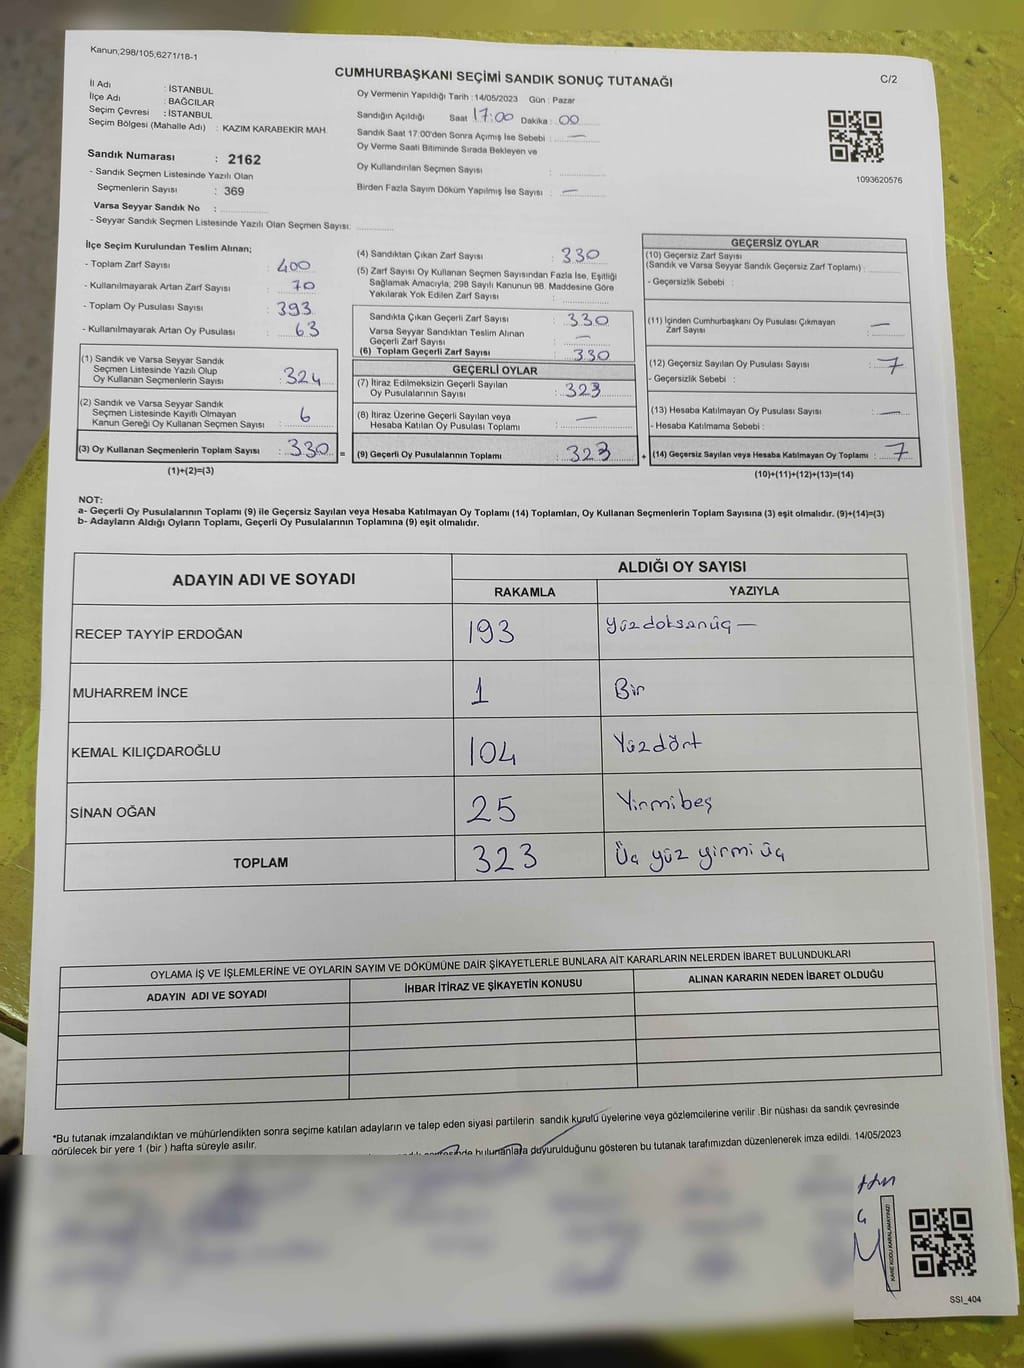 Kanun;298/105;6271/18-1
CUMHURBAŞKANI SEÇİMİ SANDIK SONUÇ TUTANAĞI
C/2
İl Adı : İSTANBUL
İlçe Adı : BAĞCILAR
Seçim Çevresi : İSTANBUL
Seçim Bölgesi (Mahalle Adı) : KAZIM KARABEKİR MAH.
Sandık Numarası : 2162
- Sandık Seçmen Listesinde Yazılı Olan
Seçmenlerin Sayısı : 369
Varsa Seyyar Sandık No :
- Seyyar Sandık Seçmen Listesinde Yazılı Olan Seçmen Sayısı:
Oy Vermenin Yapıldığı Tarih : 14/05/2023 Gün : Pazar
Sandığın Açıldığı Saat 17:00 Dakika : 00
Sandık Saat 17:00'den Sonra Açımış İse Sebebi : —
Oy Verme Saati Bitiminde Sırada Bekleyen ve
Oy Kullandırılan Seçmen Sayısı :
Birden Fazla Sayım Döküm Yapılmış İse Sayısı : —
1093620576
İlçe Seçim Kurulundan Teslim Alınan;
- Toplam Zarf Sayısı : 400
- Kullanılmayarak Artan Zarf Sayısı : 70
- Toplam Oy Pusulası Sayısı : 393
- Kullanılmayarak Artan Oy Pusulası : 63
(1) Sandık ve Varsa Seyyar Sandık
Seçmen Listesinde Yazılı Olup
Oy Kullanan Seçmenlerin Sayısı : 324
(2) Sandık ve Varsa Seyyar Sandık
Seçmen Listesinde Kayıtlı Olmayan
Kanun Gereği Oy Kullanan Seçmen Sayısı : 6
(3) Oy Kullanan Seçmenlerin Toplam Sayısı : 330 =
(1)+(2)=(3)
(4) Sandıktan Çıkan Zarf Sayısı : 330
(5) Zarf Sayısı Oy Kullanan Seçmen Sayısından Fazla İse, Eşitliği
Sağlamak Amacıyla; 298 Sayılı Kanunun 98. Maddesine Göre
Yakılarak Yok Edilen Zarf Sayısı :
Sandıkta Çıkan Geçerli Zarf Sayısı : 330
Varsa Seyyar Sandıktan Teslim Alınan
Geçerli Zarf Sayısı : —
(6) Toplam Geçerli Zarf Sayısı : 330
GEÇERLİ OYLAR
(7) İtiraz Edilmeksizin Geçerli Sayılan
Oy Pusulalarının Sayısı : 323
(8) İtiraz Üzerine Geçerli Sayılan veya
Hesaba Katılan Oy Pusulası Toplamı : —
(9) Geçerli Oy Pusulalarının Toplamı : 323 +
GEÇERSİZ OYLAR
(10) Geçersiz Zarf Sayısı
(Sandık ve Varsa Seyyar Sandık Geçersiz Zarf Toplamı) :
- Geçersizlik Sebebi :
(11) İçinden Cumhurbaşkanı Oy Pusulası Çıkmayan
Zarf Sayısı : —
(12) Geçersiz Sayılan Oy Pusulası Sayısı : 7
- Geçersizlik Sebebi :
(13) Hesaba Katılmayan Oy Pusulası Sayısı : —
- Hesaba Katılmama Sebebi :
(14) Geçersiz Sayılan veya Hesaba Katılmayan Oy Toplamı : 7
(10)+(11)+(12)+(13)=(14)
NOT:
a- Geçerli Oy Pusulalarının Toplamı (9) ile Geçersiz Sayılan veya Hesaba Katılmayan Oy Toplamı (14) Toplamları, Oy Kullanan Seçmenlerin Toplam Sayısına (3) eşit olmalıdır. (9)+(14)=(3)
b- Adayların Aldığı Oyların Toplamı, Geçerli Oy Pusulalarının Toplamına (9) eşit olmalıdır.
ADAYIN ADI VE SOYADI
ALDIĞI OY SAYISI
RAKAMLA YAZIYLA
RECEP TAYYİP ERDOĞAN 193 Yüzdoksanüç —
MUHARREM İNCE 1 Bir
KEMAL KILIÇDAROĞLU 104 Yüzdört
SİNAN OĞAN 25 Yirmibeş
TOPLAM 323 Üç yüz yirmi üç
OYLAMA İŞ VE İŞLEMLERİNE VE OYLARIN SAYIM VE DÖKÜMÜNE DAİR ŞİKAYETLERLE BUNLARA AİT KARARLARIN NELERDEN İBARET BULUNDUKLARI
ADAYIN ADI VE SOYADI İHBAR İTİRAZ VE ŞİKAYETİN KONUSU ALINAN KARARIN NEDEN İBARET OLDUĞU
*Bu tutanak imzalandıktan ve mühürlendikten sonra seçime katılan adayların ve talep eden siyasi partilerin sandık kurulu üyelerine veya gözlemcilerine verilir .Bir nüshası da sandık çevresinde
görülecek bir yere 1 (bir ) hafta süreyle asılır.
bulunanlara duyurulduğunu gösteren bu tutanak tarafımızdan düzenlenerek imza edildi. 14/05/2023
KARE KODU KARALAMAYINIZ!
SSI_404